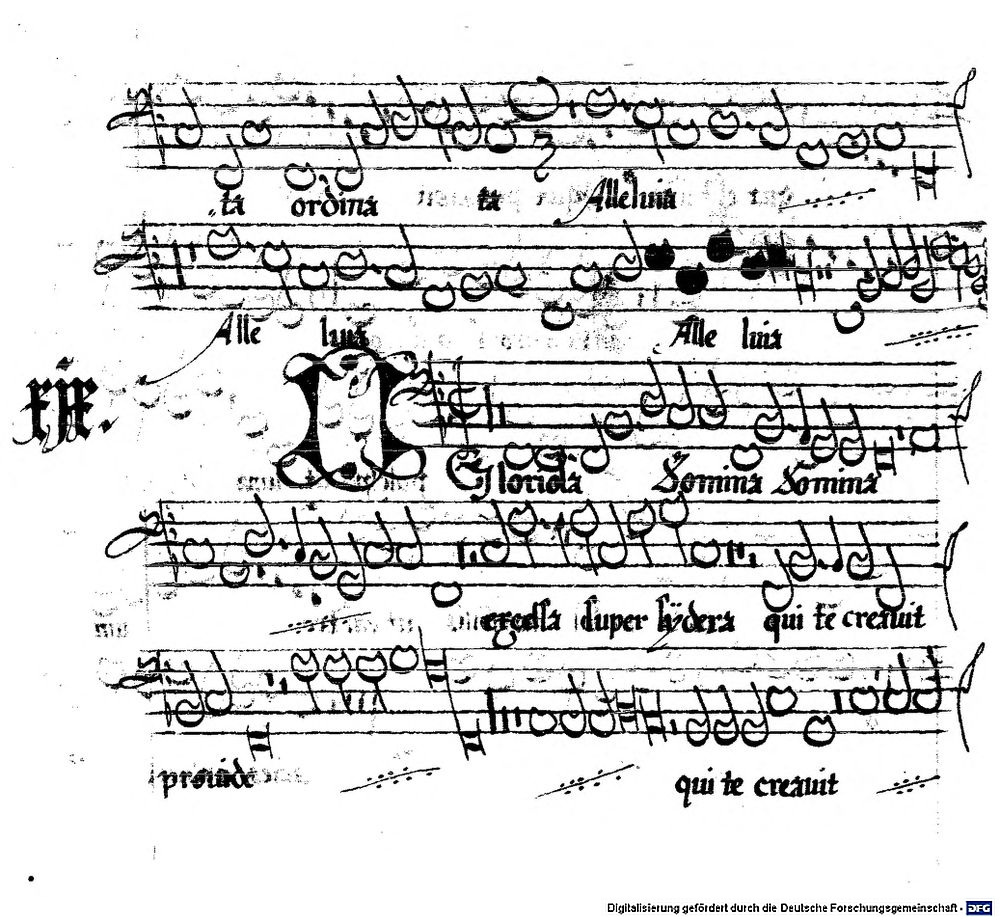 ta ordina ta Alleluia
Alle luia Alle luia
xix.
O Gloriosa Domina Domina
excelsa super sÿdera qui tē creauit
prouide qui te creauit
Digitalisierung gefördert durch die Deutsche Forschungsgemeinschaft - DFG